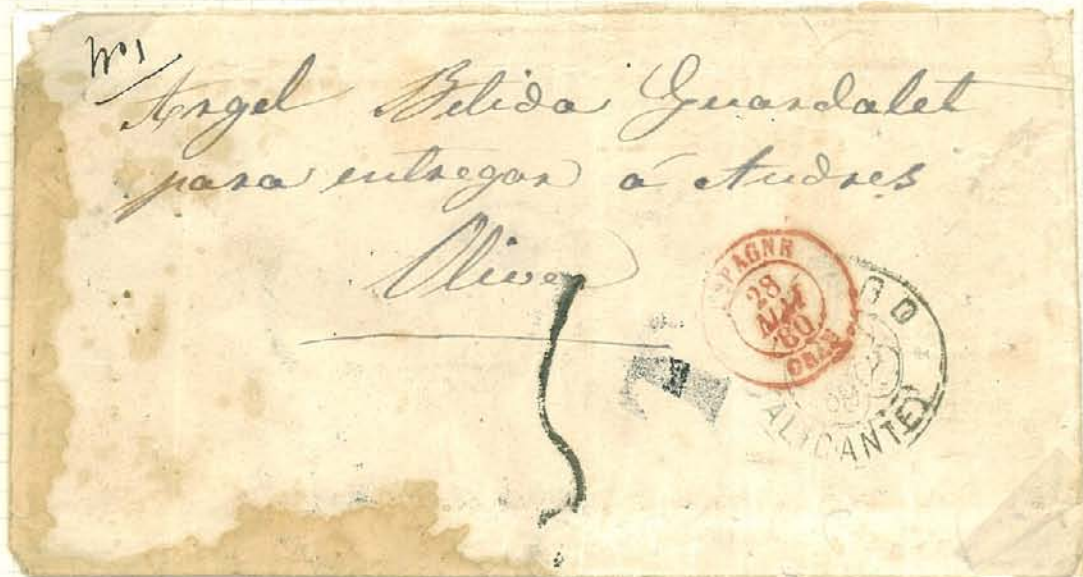 Nº1
Angel Belida Guardalet
para entregar á Andres
Oliver
ESPAGNE
28
80
ORAN
ALICANTE